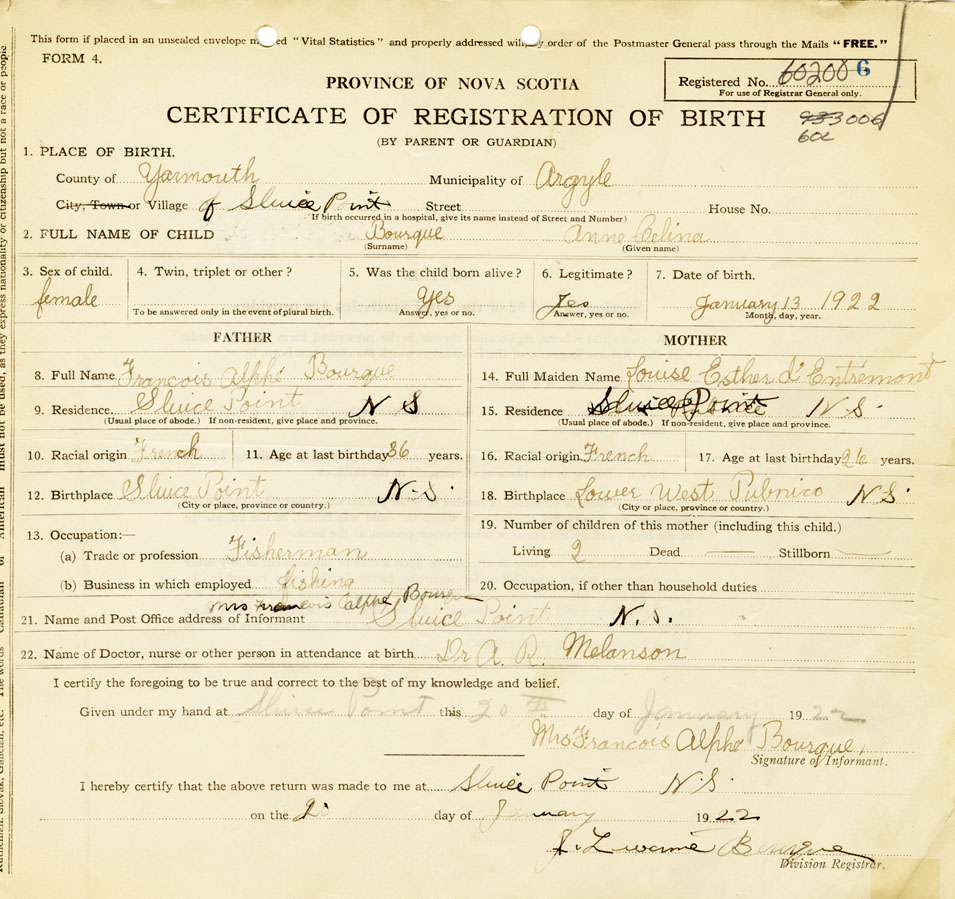 This form if placed in an unsealed envelope m ed "Vital Statistics" and properly addressed will, by order of the Postmaster General pass through the Mails "FREE."
FORM 4.
Registered No. 602006
For use of Registrar General only.
PROVINCE OF NOVA SCOTIA
CERTIFICATE OF REGISTRATION OF BIRTH
933 006
602
(BY PARENT OR GUARDIAN)
1. PLACE OF BIRTH.
County of Yarmouth Municipality of Argyle
City, Town or Village of Sluice Point Street House No.
If birth occurred in a hospital, give its name instead of Street and Number)
2. FULL NAME OF CHILD Bourque Anne Celina
(Surname) (Given name)
3. Sex of child. 4. Twin, triplet or other? 5. Was the child born alive? 6. Legitimate? 7. Date of birth.
female Yes Yes January 13 1922
To be answered only in the event of plural birth. Answer, yes or no. Answer, yes or no. Month, day, year.
FATHER MOTHER
8. Full Name Francois Alphé Bourque 14. Full Maiden Name Louise Esther d'Entremont
9. Residence Sluice Point N S 15. Residence Sluice Point N.S.
(Usual place of abode.) If non-resident, give place and province. (Usual place of abode.) If non-resident, give place and province.
10. Racial origin French 11. Age at last birthday 36 years. 16. Racial origin French 17. Age at last birthday 26 years.
12. Birthplace Sluice Point N.S. 18. Birthplace Lower West Pubnico N S.
(City or place, province or country.) (City or place, province or country.)
13. Occupation:— 19. Number of children of this mother (including this child.)
(a) Trade or profession Fisherman Living 2 Dead — Stillborn —
(b) Business in which employed fishing 20. Occupation, if other than household duties
Mrs Francois Alphé Bourque
21. Name and Post Office address of Informant Sluice Point N. S.
22. Name of Doctor, nurse or other person in attendance at birth Dr A. R. Melanson
I certify the foregoing to be true and correct to the best of my knowledge and belief.
Given under my hand at Sluice Point this 20 day of January 1922
Mrs Francois Alphé Bourque,
Signature of Informant.
I hereby certify that the above return was made to me at Sluice Point N.S.
on the day of January 1922
Bourque
Division Registrar.